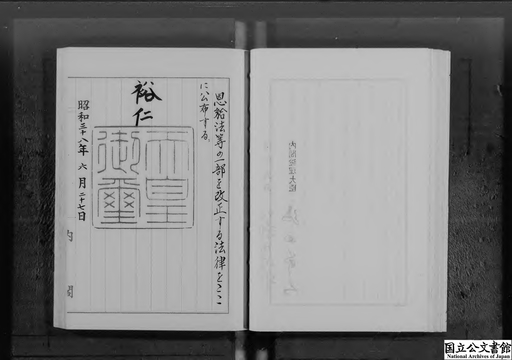 恩給法等の一部を改正する法律をここ
に公布する。
裕仁
天皇
御璽
昭和三十八年 六月 二十七日
内 閣
内閣総理大臣
国立公文書館
National Archives of Japan